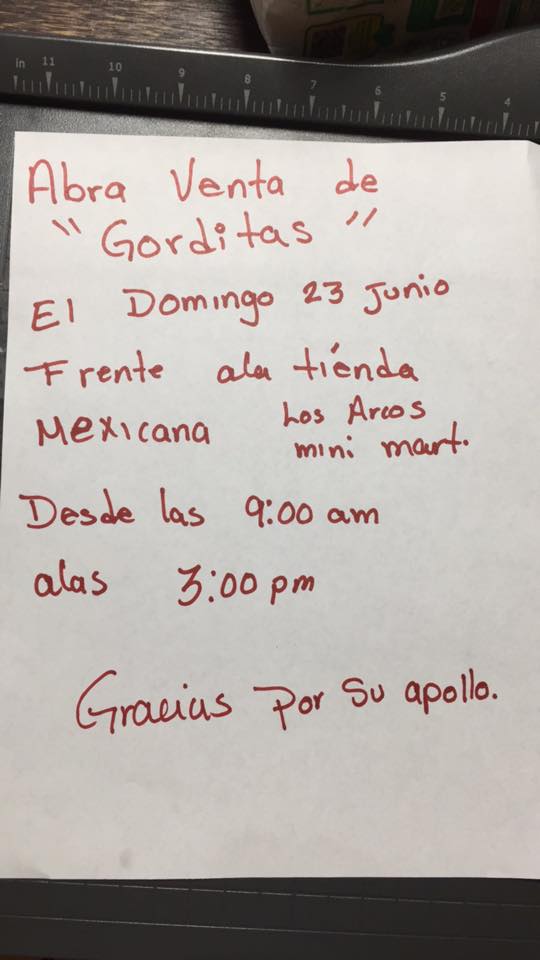 in 11 10 9 8 7 6 5 4
Abra Venta de
"Gorditas"
El Domingo 23 Junio
Frente ala tiénda
Mexicana Los Arcos
mini mart.
Desde las 9:00 am
alas 3:00 pm
Gracias por su apollo.